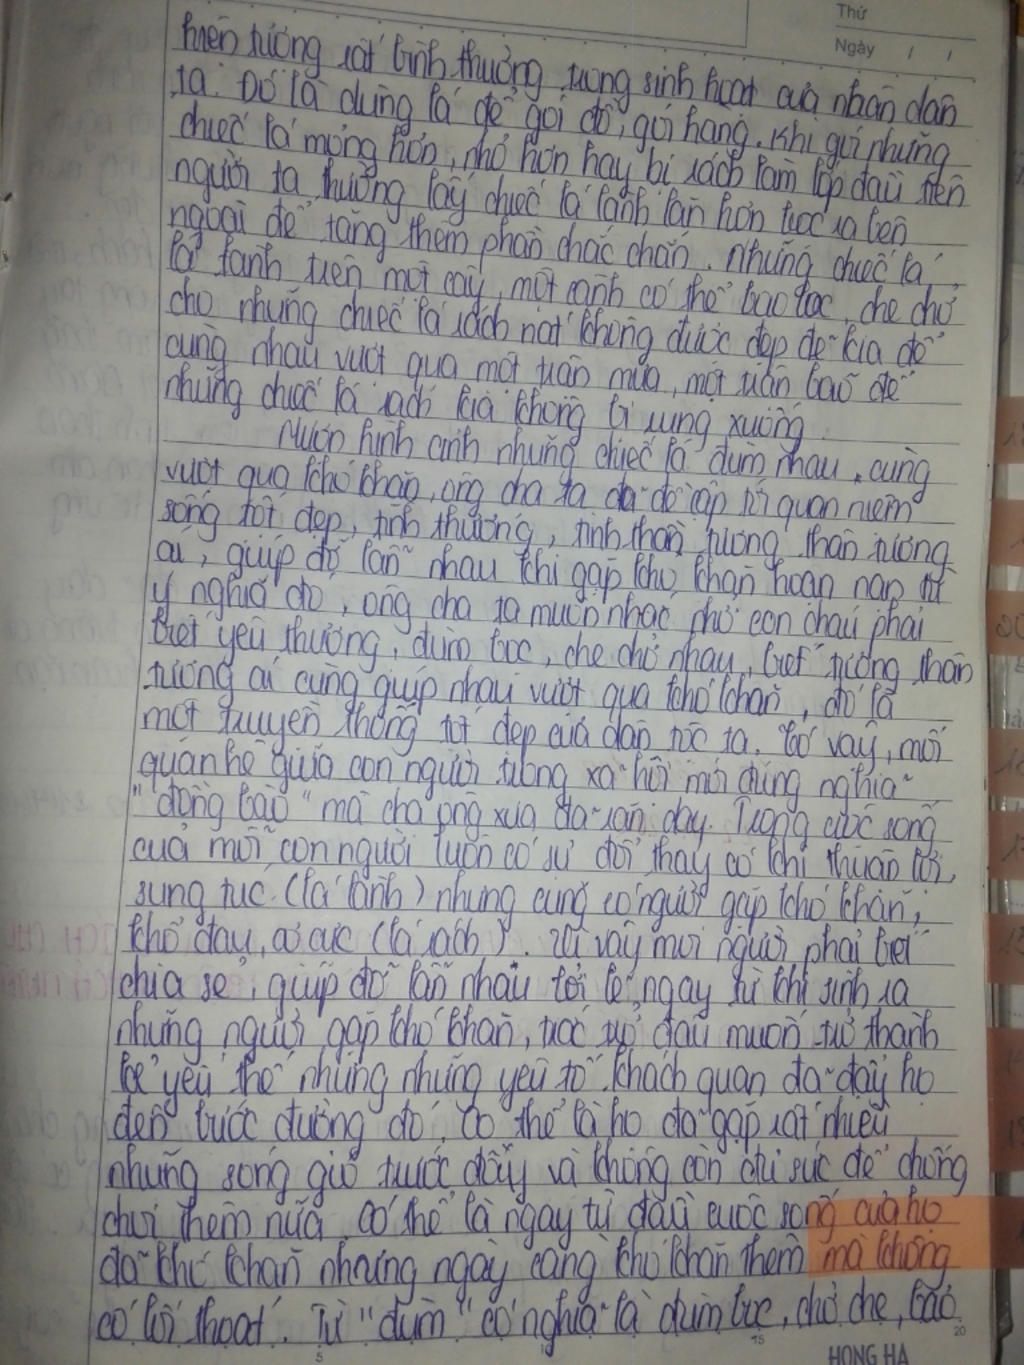 Thứ
Ngày / /
hiện tượng rất bình thường trong sinh hoạt của nhân dân
ta. Đó là dùng lá để gói đồ, gói hàng. Khi gói những
chiếc lá mỏng hơn, nhỏ hơn hay bị rách làm lớp đầu tiên
người ta thường lấy chiếc lá lành lặn hơn bọc ra bên
ngoài để tăng thêm phần chắc chắn. Những chiếc lá
lá lành trên một cây, một cành có thể bao bọc, che chở
cho những chiếc lá rách nát không được đẹp đẽ kia để
cùng nhau vượt qua một trận mưa, một trận bão để
những chiếc lá rách kia không bị rụng xuống.
Mượn hình ảnh những chiếc lá đùm nhau, cùng
vượt qua khó khăn, ông cha ta đã đề cập tới quan niệm
sống tốt đẹp, tình thương, tinh thần tương thân tương
ái, giúp đỡ lẫn nhau khi gặp khó khăn hoạn nạn từ
ý nghĩa đó, ông cha ta muốn nhắc nhở con cháu phải
biết yêu thương, đùm bọc, che chở nhau, biết tương thân
tương ái cùng giúp nhau vượt qua khó khăn, đó là
một truyền thống tốt đẹp của dân tộc ta. Có vậy, mối
quan hệ giữa con người trong xã hội mới đúng nghĩa
"đồng bào" mà cha ông xưa đã răn dạy. Trong cuộc sống
của mỗi con người luôn có sự đổi thay có khi thuận lợi,
sung túc (lá lành) nhưng cũng có người gặp khó khăn,
khổ đau, cơ cực (lá rách). Vì vậy mọi người phải biết
chia sẻ, giúp đỡ lẫn nhau bởi lẽ, ngay từ khi sinh ra
những người gặp khó khăn, trắc trở đâu muốn trở thành
kẻ yếu thế nhưng những yếu tố khách quan đã đẩy họ
đến bước đường đó. Có thể là họ đã gặp rất nhiều
những sóng gió trước đấy và không còn đủ sức để chống
chọi thêm nữa. Có thể là ngay từ đầu cuộc sống của họ
đã khó khăn nhưng ngày càng khó khăn thêm mà không
có lối thoát. Từ "đùm" có nghĩa là đùm bọc, chở che, bảo
5
15
20
HONG HA